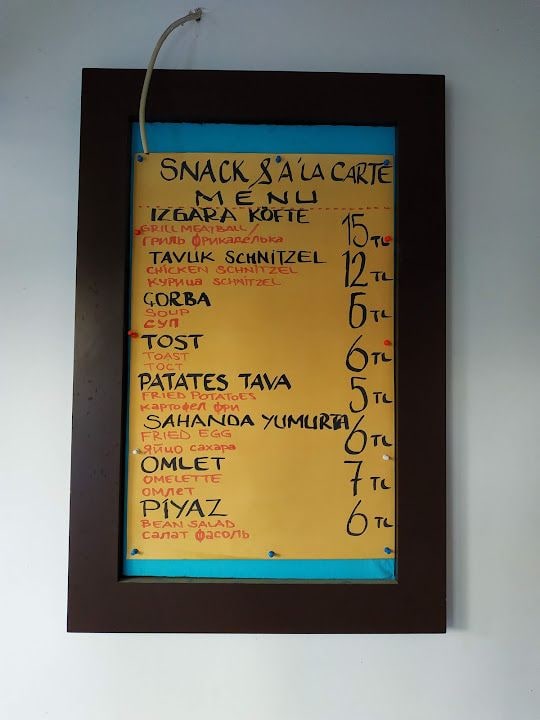 SNACK & A'LA CARTE
MENU
IZGARA KÖFTE
GRILL MEATBALL/
ГРИЛЬ ФРИКАДЕЛЬКА
15 TL
TAVUK SCHNİTZEL
CHICKEN SCHNİTZEL
КУРИЦА SCHNİTZEL
12 TL
ÇORBA
SOUP
СУП
5 TL
TOST
TOAST
ТОСТ
6 TL
PATATES TAVA
FRIED POTATOES
картофел фри
5 TL
SAHANDA YUMURTA
FRIED EGG
яйцо сахара
6 TL
OMLET
OMELETTE
омлет
7 TL
PİYAZ
BEAN SALAD
салат фасоль
6 TL